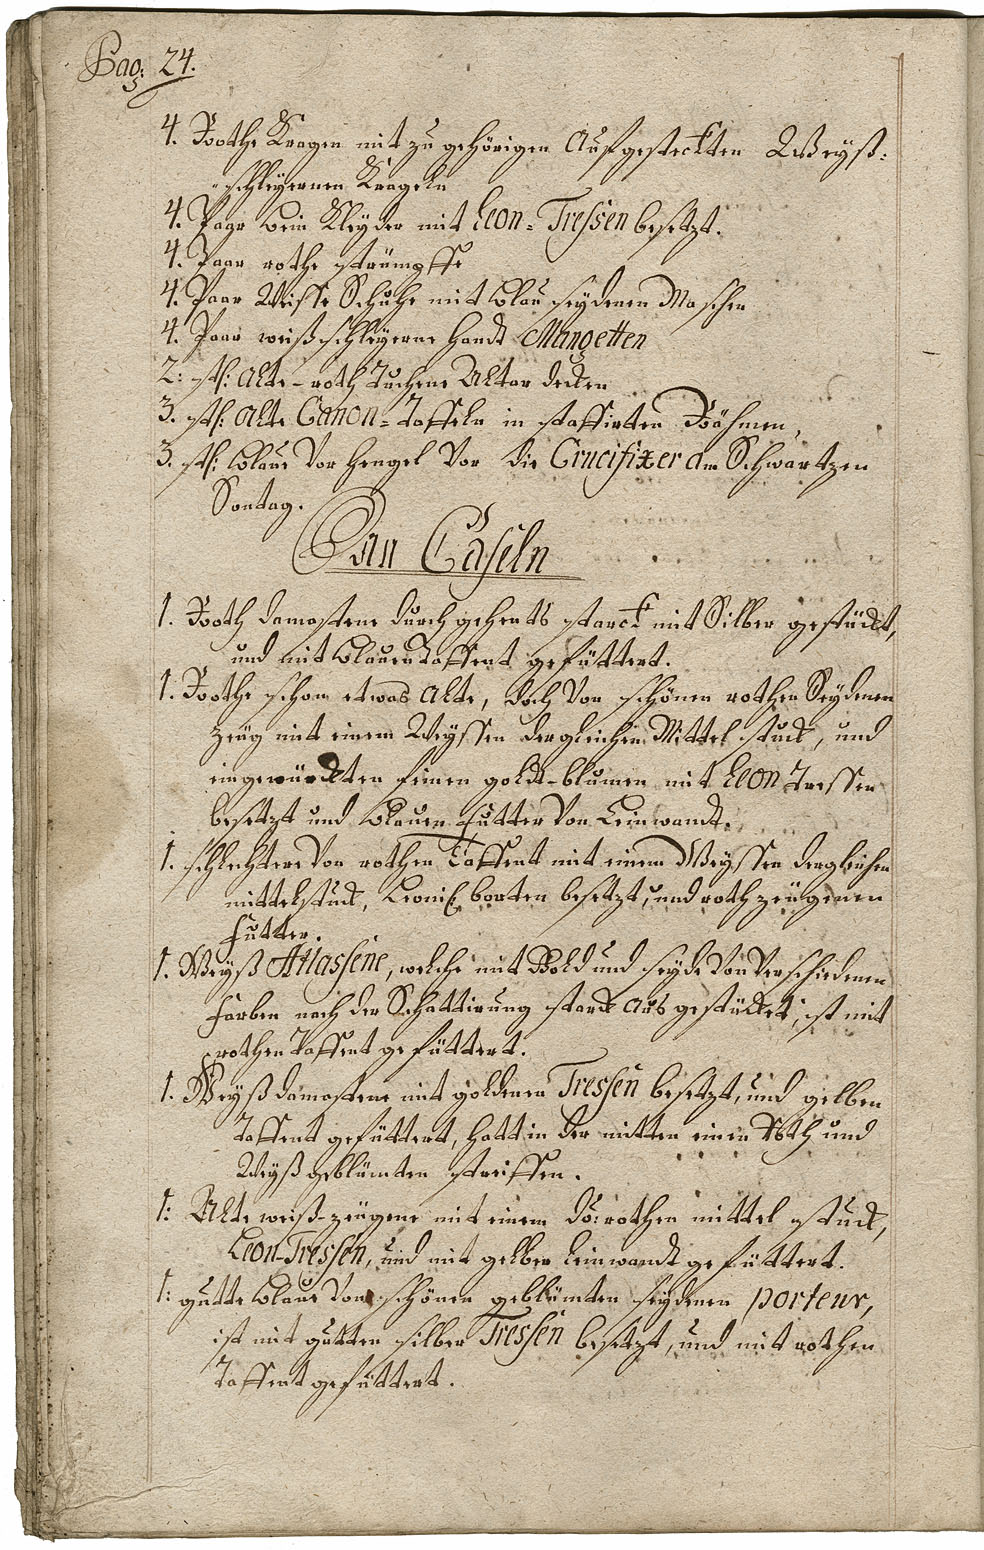 Pag: 24.
4. Rothe Kragen mit zu gehörigen Aufgesteckten Weyß-
schleyernen Krageln
4. Paar bein Kleyder mit Leon-Tressen besetzt.
4. Paar rothe strümpffe
4. Paar Weisse Schuhe mit blau seydenen Maschen
4. Paar weiß schleyerne handt Mangetten
2: stk: Alte-roth Tuchene Altar decken
3. stk: Alte Canon-Taffeln in staffirten Rähmen,
3. stk: blaue Vor hengel Vor die Crucifixer am Schwartzen
Sontag.
An Caseln
1. Roth damastene durch gehents starck mit Silber gestückt,
und mit blauen Taffent gefüttert.
1. Rothe schon etwas Alte, doch Von schönen rothen Seydenen
zeüg mit einem Weyssen dergleichen Mittel stuck, und
eingewürckten feinen goldt-blumen mit Leon Tressen
besetzt und blauen Futter Von Leinwandt.
1. schlechtere Von rothen Taffent mit einem Weyssen dergleichen
mittelstuck, Leonis: borten besetzt, und roth zeügenen
Futter.
1. Weyß Atlassene, welche mit Gold und seyde Von Verschiedenen
Farben nach der Schattirung starck Aus gestückt, ist mit
rothen Taffent gefüttert.
1. Weyß damastene mit goldenen Tressen besetzt, und gelben
Taffent gefüttert, hatt in der mitten einen Roth und
Weyß geblümten streiffen.
1: Alte weiß-zeügene mit einem do: rothen mittel stuck,
Leon-Tressen, und mit gelber Leinwandt gefüttert.
1: gutte blaue Von schönen geblümten seydenen porteur,
ist mit gutten silber Tressen besetzt, und mit rothen
Taffent gefüttert.